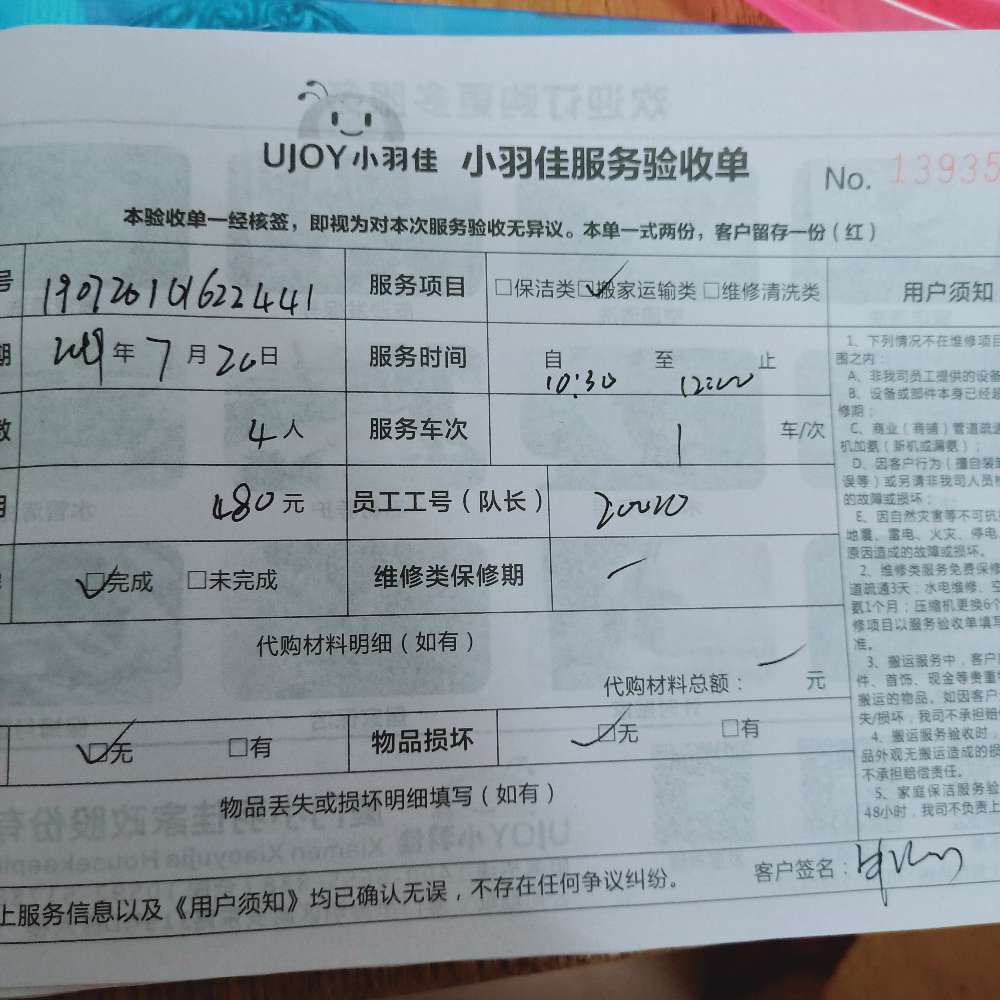 UJOY小羽佳 小羽佳服务验收单 No. 13935
本验收单一经核签，即视为对本次服务验收无异议。本单一式两份，客户留存一份（红）
号 服务项目 □保洁类 □搬家运输类 □维修清洗类 用户须知
期 2019年7月20日 服务时间 自 10:30 至 12:00 止
数 4人 服务车次 1 车/次
用 480元 员工工号（队长）
□完成 □未完成 维修类保修期
代购材料明细（如有）
代购材料总额： 元
□无 □有 物品损坏 □无 □有
物品丢失或损坏明细填写（如有）
客户签名：
上服务信息以及《用户须知》均已确认无误，不存在任何争议纠纷。
1、下列情况不在维修项目
围之内：
A、非我司员工提供的设备
B、设备或部件本身已经超
修期；
C、商业（商铺）管道疏通
机加氨（新机或漏氨）；
D、因客户行为（擅自装
误等）或另请非我司人员
的故障或损坏；
E、因自然灾害等不可抗
地震、雷电、火灾、停电
原因造成的故障或损坏。
2、维修类服务免费保修
道疏通3天；水电维修、空
氨1个月；压缩机更换6个
修项目以服务验收单填写
准。
3、搬运服务中，客户
件、首饰、现金等贵重
搬运的物品，如因客户
失/损坏，我司不承担赔
4、搬运服务验收时，
品外观无搬运造成的损
不承担赔偿责任。
5、家庭保洁服务验
48小时，我司不负责上